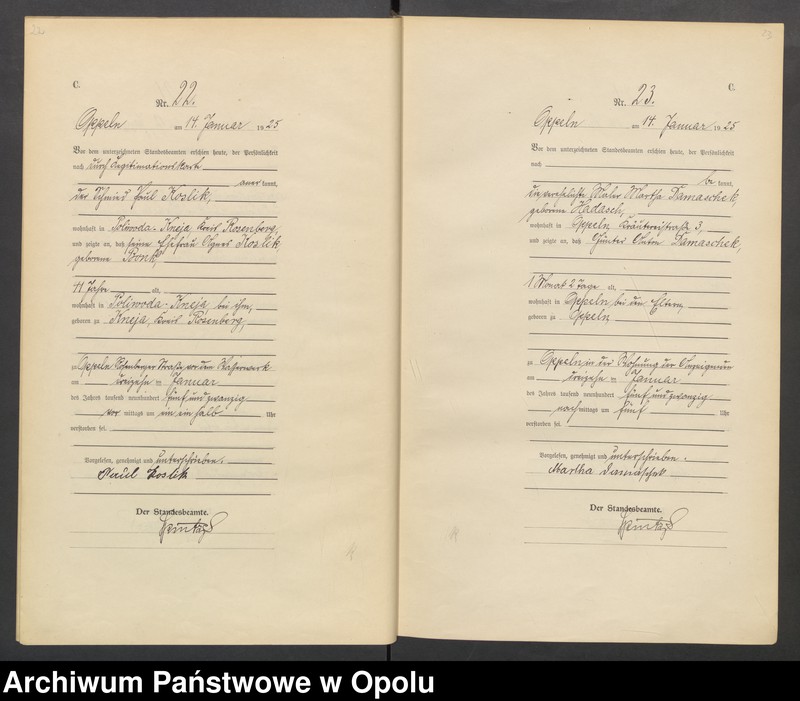 22
C.
Nr. 22.
Oppeln am 14. Januar 1925
Vor dem unterzeichneten Standesbeamten erschien heute, der Persönlichkeit
nach durch Legitimationskarte
aner kannt,
der Schmied Paul Koslik,
wohnhaft in Poliwoda-Kneja, Kreis Rosenberg,
und zeigte an, daß seine Ehefrau Agnes Koslik
geborene Bonk,
41 Jahre alt,
wohnhaft in Poliwoda-Kneja bei ihm,
geboren zu Kneja, Kreis Rosenberg,
zu Oppeln Rosenberger Straße vor dem Wasserwerk
am dreizehn ten Januar
des Jahres tausend neunhundert fünfundzwanzig
vor mittags um ein ein halb Uhr
verstorben sei.
Vorgelesen, genehmigt und unterschrieben.
Paul Koslik
Der Standesbeamte.
23
C.
Nr. 23.
Oppeln am 14. Januar 1925
Vor dem unterzeichneten Standesbeamten erschien heute, der Persönlichkeit
nach
be kannt,
die verehelichte Maler Martha Damaschek,
geborene Hadasch,
wohnhaft in Oppeln Kräutereistraße 3,
und zeigte an, daß Günter Anton Damaschek,
1 Monat 2 Tage alt,
wohnhaft in Oppeln bei den Eltern,
geboren zu Oppeln
zu Oppeln in der Wohnung der Anzeigenden
am dreizehn ten Januar
des Jahres tausend neunhundert fünfundzwanzig
nach mittags um fünf Uhr
verstorben sei.
Vorgelesen, genehmigt und unterschrieben.
Martha Damaschek
Der Standesbeamte.
Archiwum Państwowe w Opolu